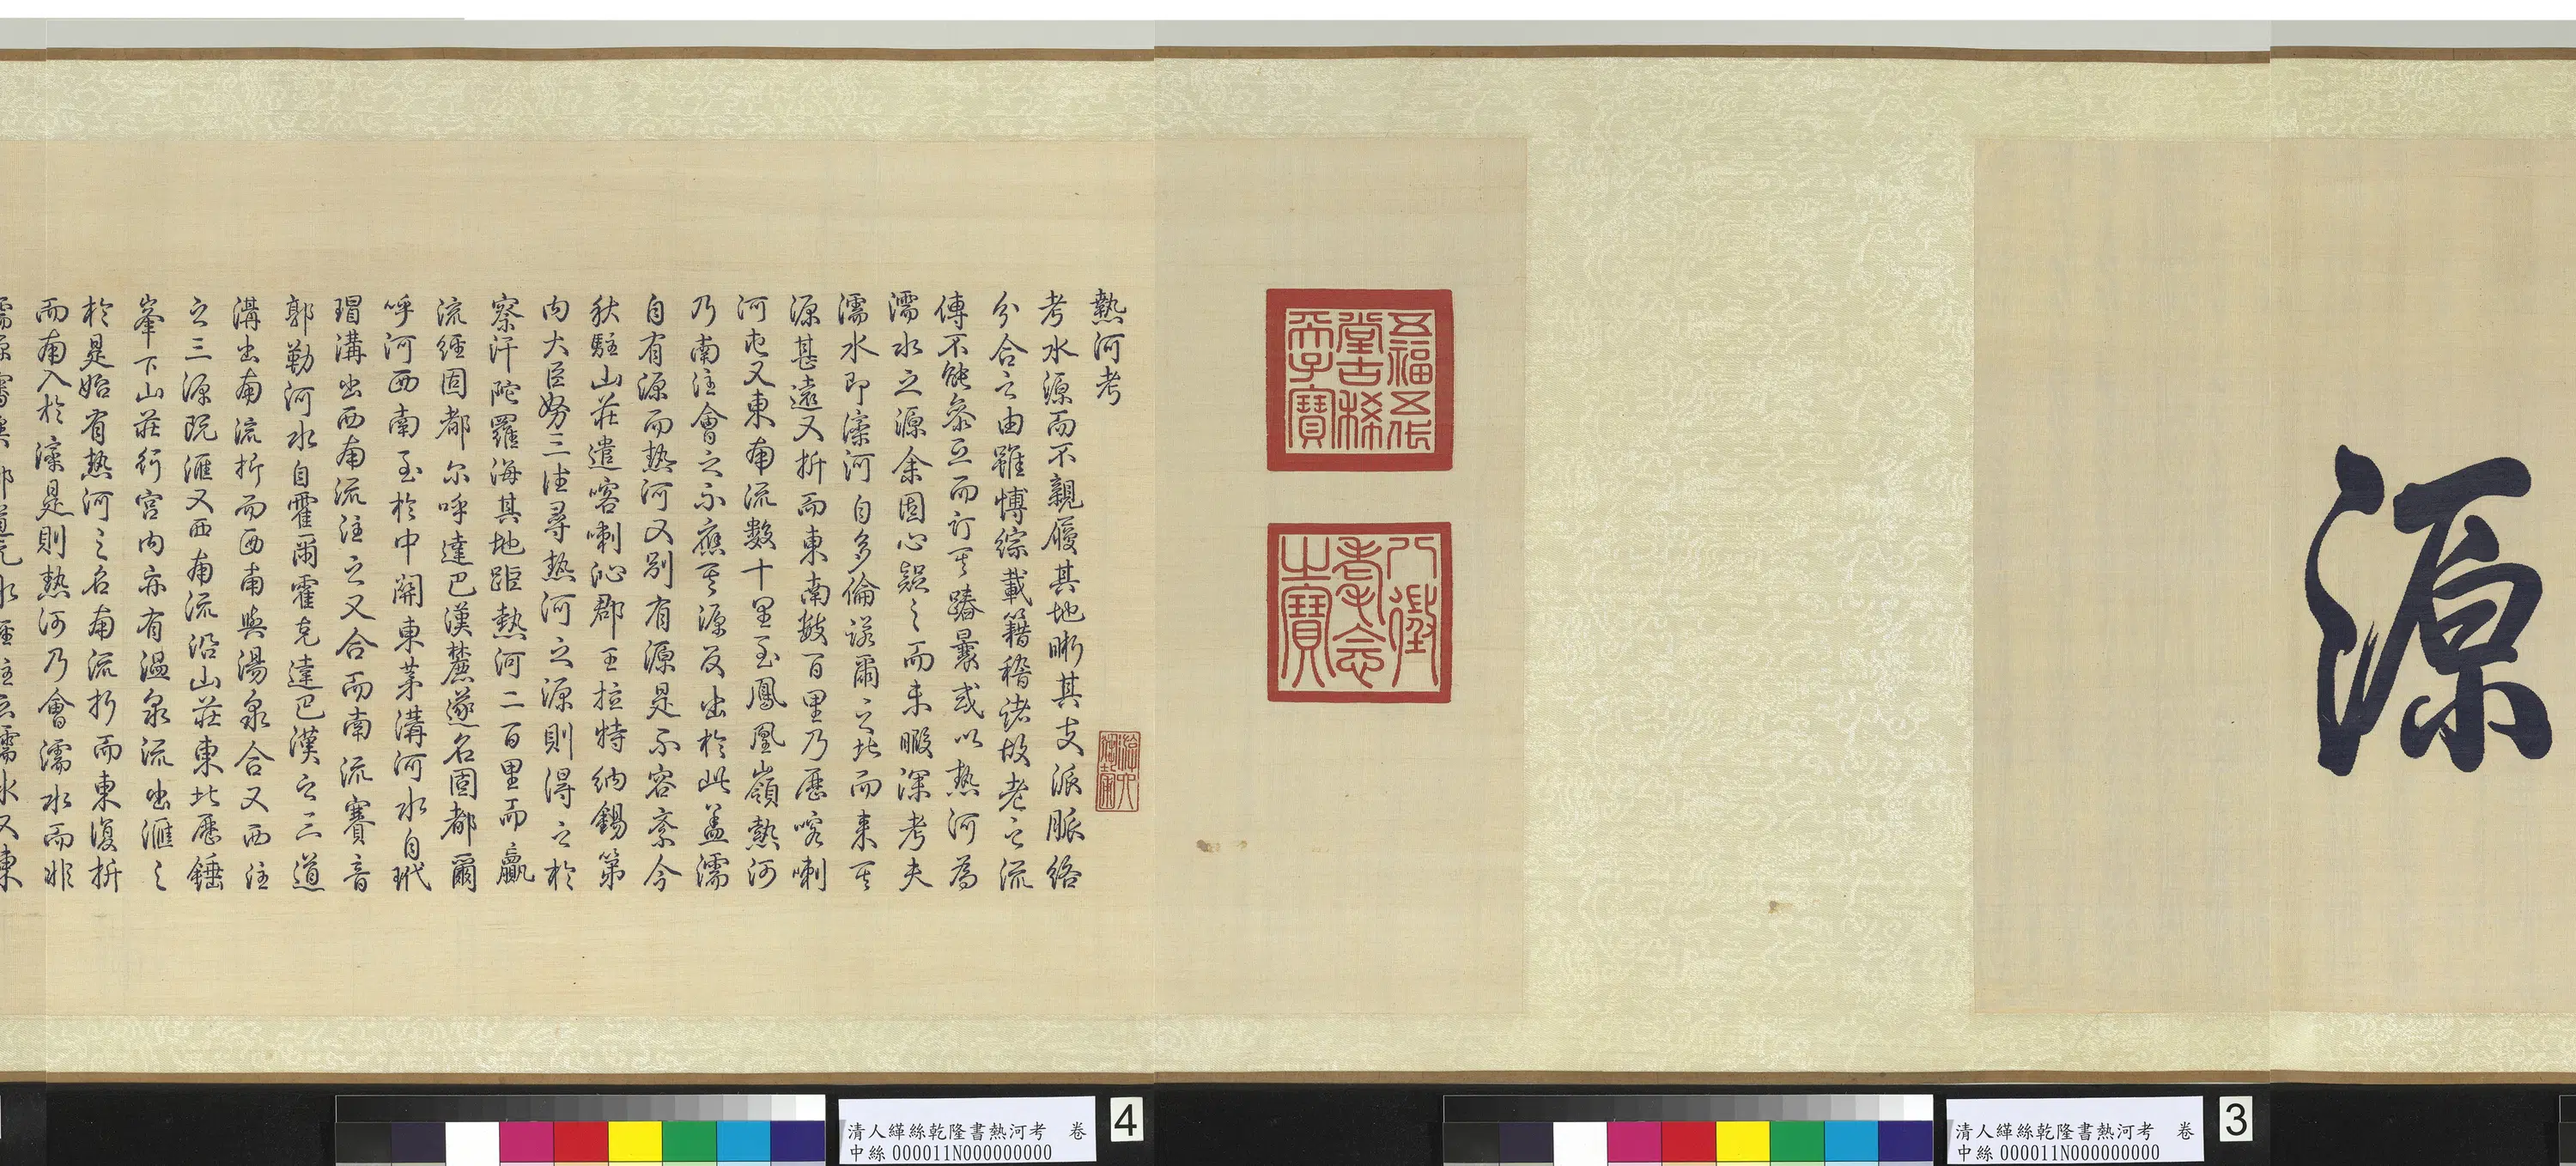 源
五福五代
堂古稀
天子寶
八徵
耄念
之寶
熱河考
考水源而不親履其地晰其支派脈絡
分合之由雖博綜載籍稽諸故老之流
傳不能參互而訂其踳曩或以熱河為
濡水之源余固心疑之而未暇深考夫
濡水即灤河自多倫諾爾之北而来其
源甚遠又折而東南數百里乃歷喀喇
河屯又東南流數十里至鳳凰嶺熱河
乃南注會之不應其源反出於此蓋濡
自有源而熱河又別有源是不容紊今
秋駐山莊遣喀喇沁郡王拉特納錫第
內大臣努三往尋熱河之源則得之於
察汗陀羅海其地距熱河二百里而贏
流經固都尔呼達巴漢麓遂名固都爾
呼河西南至於中關東茅溝河水自玳
瑁溝出西南流注之又合而南流賽音
郭勒河水自霍爾霍克達巴漢之三道
溝出南流折而西南與湯泉合又西注
之三源既滙又西南流沿山莊東北歷錘
峯下山莊行宮內亦有溫泉流出滙之
於是始有熱河之名南流折而東復折
而南入於灤是則熱河乃會濡水而非
清人緙絲乾隆書熱河考 卷
中絲000011N000000000
4
清人緙絲乾隆書熱河考 卷
中絲000011N000000000
3